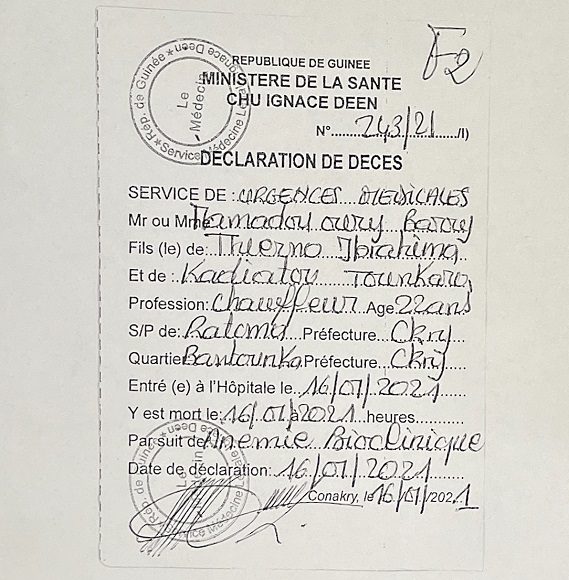 F2
REPUBLIQUE DE GUINEE
MINISTERE DE LA SANTE
CHU IGNACE DEEN
N°........243/21...../I)
DECLARATION DE DECES
SERVICE DE : URGENCES MEDICALES
Mr ou Mme Mamadou oury Barry
Fils (le) de: Thierno Ibrahima
Et de : Kadiatou TOUNKARA
Profession: Chauffeur Age 22ans
S/P de: Ratoma Préfecture...Ckry
Quartier Bantounka Préfecture...Ckry
Entré (e) à l'Hôpitale le. 16/01/2021
Y est mort le: 16/01/2021 à ...heures...........
Par suit de Anemie Bioclinique
Date de déclaration: 16/01/2021
Conakry, le 16/01/2021
Rép. de Guinée
Service Médecine
Ignace Deen
Le Médecin
Rép. de Guinée
Service Médecine
Ignace Deen
Le Médecin